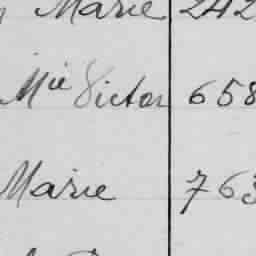 Marie 242
Mie Victor 658
Marie 763